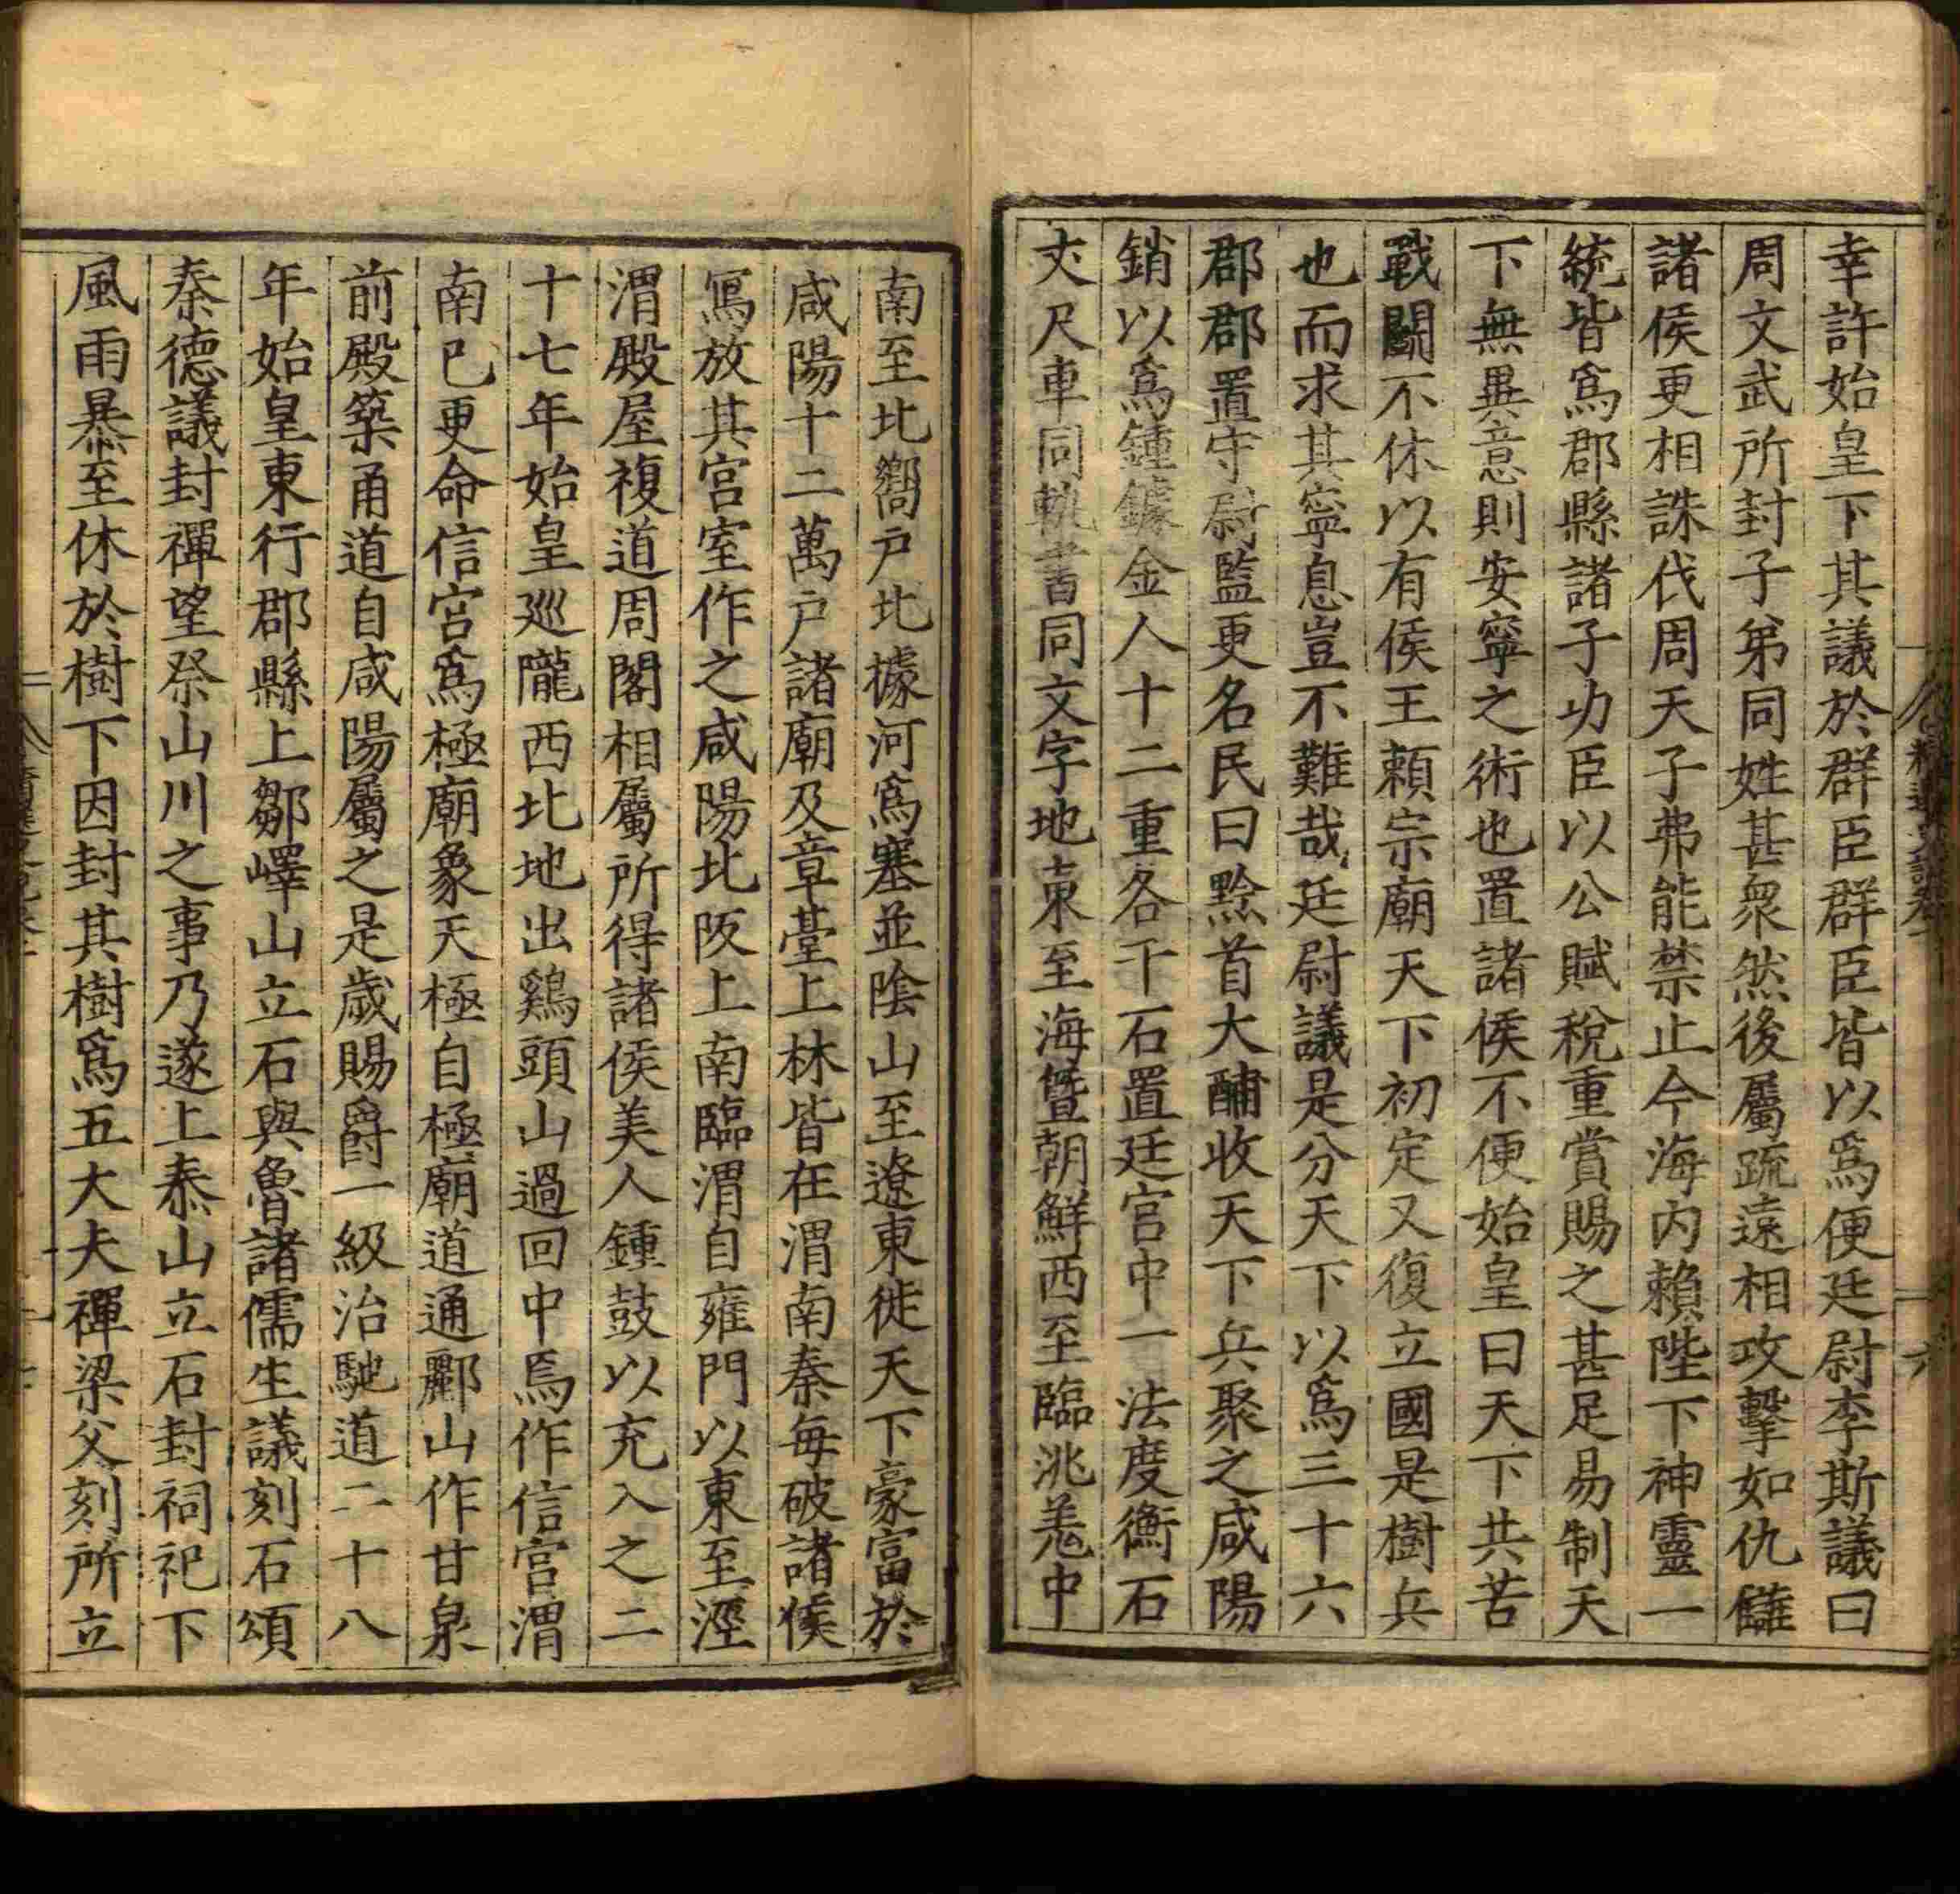 幸許始皇下其議於群臣群臣皆以爲便廷尉李斯議曰
周文武所封子弟同姓甚衆然後屬疏遠相攻擊如仇讎
諸侯更相誅伐周天子弗能禁止今海內賴陛下神靈一
統皆爲郡縣諸子功臣以公賦稅重賞賜之甚足易制天
下無異意則安寧之術也置諸侯不便始皇曰天下共苦
戰鬭不休以有侯王賴宗廟天下初定又復立國是樹兵
也而求其寧息豈不難哉廷尉議是分天下以爲三十六
郡郡置守尉監更名民曰黔首大酺收天下兵聚之咸陽
銷以爲鍾鐻金人十二重各千石置廷宮中一法度衡石
丈尺車同軌書同文字地東至海暨朝鮮西至臨洮羌中
南至北嚮戶北據河爲塞並陰山至遼東徙天下豪富於
咸陽十二萬戶諸廟及章臺上林皆在渭南秦每破諸侯
寫放其宮室作之咸陽北阪上南臨渭自雍門以東至涇
渭殿屋複道周閣相屬所得諸侯美人鍾鼓以充入之二
十七年始皇巡隴西北地出鷄頭山過回中焉作信宮渭
南已更命信宮爲極廟象天極自極廟道通酈山作甘泉
前殿築甬道自咸陽屬之是歲賜爵一級治馳道二十八
年始皇東行郡縣上鄒嶧山立石與魯諸儒生議刻石頌
秦德議封禪望祭山川之事乃遂上泰山立石封祠祀下
風雨暴至休於樹下因封其樹爲五大夫禪梁父刻所立